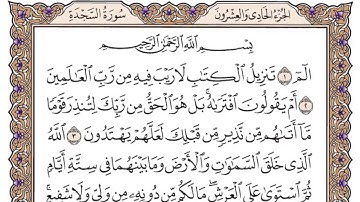 الجزء الحادي والعشرون سورة السجدة
بِسْمِ ٱللَّهِ ٱلرَّحْمَٰنِ ٱلرَّحِيمِ
الٓمٓ ١ تَنزِيلُ ٱلْكِتَٰبِ لَا رَيْبَ فِيهِ مِن رَّبِّ ٱلْعَٰلَمِينَ
٢ أَمْ يَقُولُونَ ٱفْتَرَىٰهُ ۚ بَلْ هُوَ ٱلْحَقُّ مِن رَّبِّكَ لِتُنذِرَ قَوْمًا
مَّآ أَتَىٰهُم مِّن نَّذِيرٍ مِّن قَبْلِكَ لَعَلَّهُمْ يَهْتَدُونَ ٣ ٱللَّهُ
ٱلَّذِى خَلَقَ ٱلسَّمَٰوَٰتِ وَٱلْأَرْضَ وَمَا بَيْنَهُمَا فِى سِتَّةِ أَيَّامٍ
ثُمَّ ٱسْتَوَىٰ عَلَى ٱلْعَرْشِ ۖ مَا لَكُم مِّن دُونِهِۦ مِن وَلِىٍّ وَلَا شَفِيعٍ ۚ